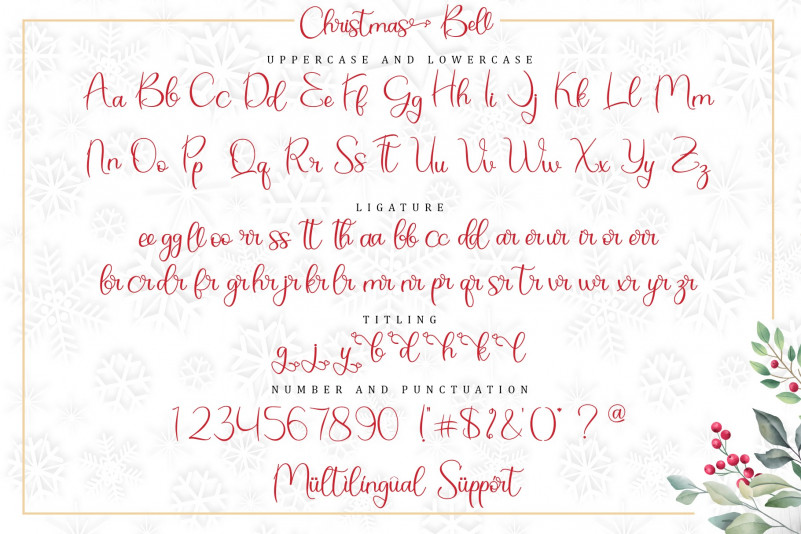 Christmas Bell
UPPERCASE AND LOWERCASE
Aa Bb Cc Dd Ee Ff Gg Hh Ii Jj Kk Ll Mm
Nn Oo Pp Qq Rr Ss Tt Uu Vv Ww Xx Yy Zz
LIGATURE
ee gg ll oo rr ss tt th aa bb cc dd ar er ur ir or err
br cr dr fr gr hr jr kr lr mr nr pr qr sr tr vr wr xr yr zr
TITLING
g j y b d h k l
NUMBER AND PUNCTUATION
1234567890 !"#$%&'()* ? @
Mültilíngual Süppört